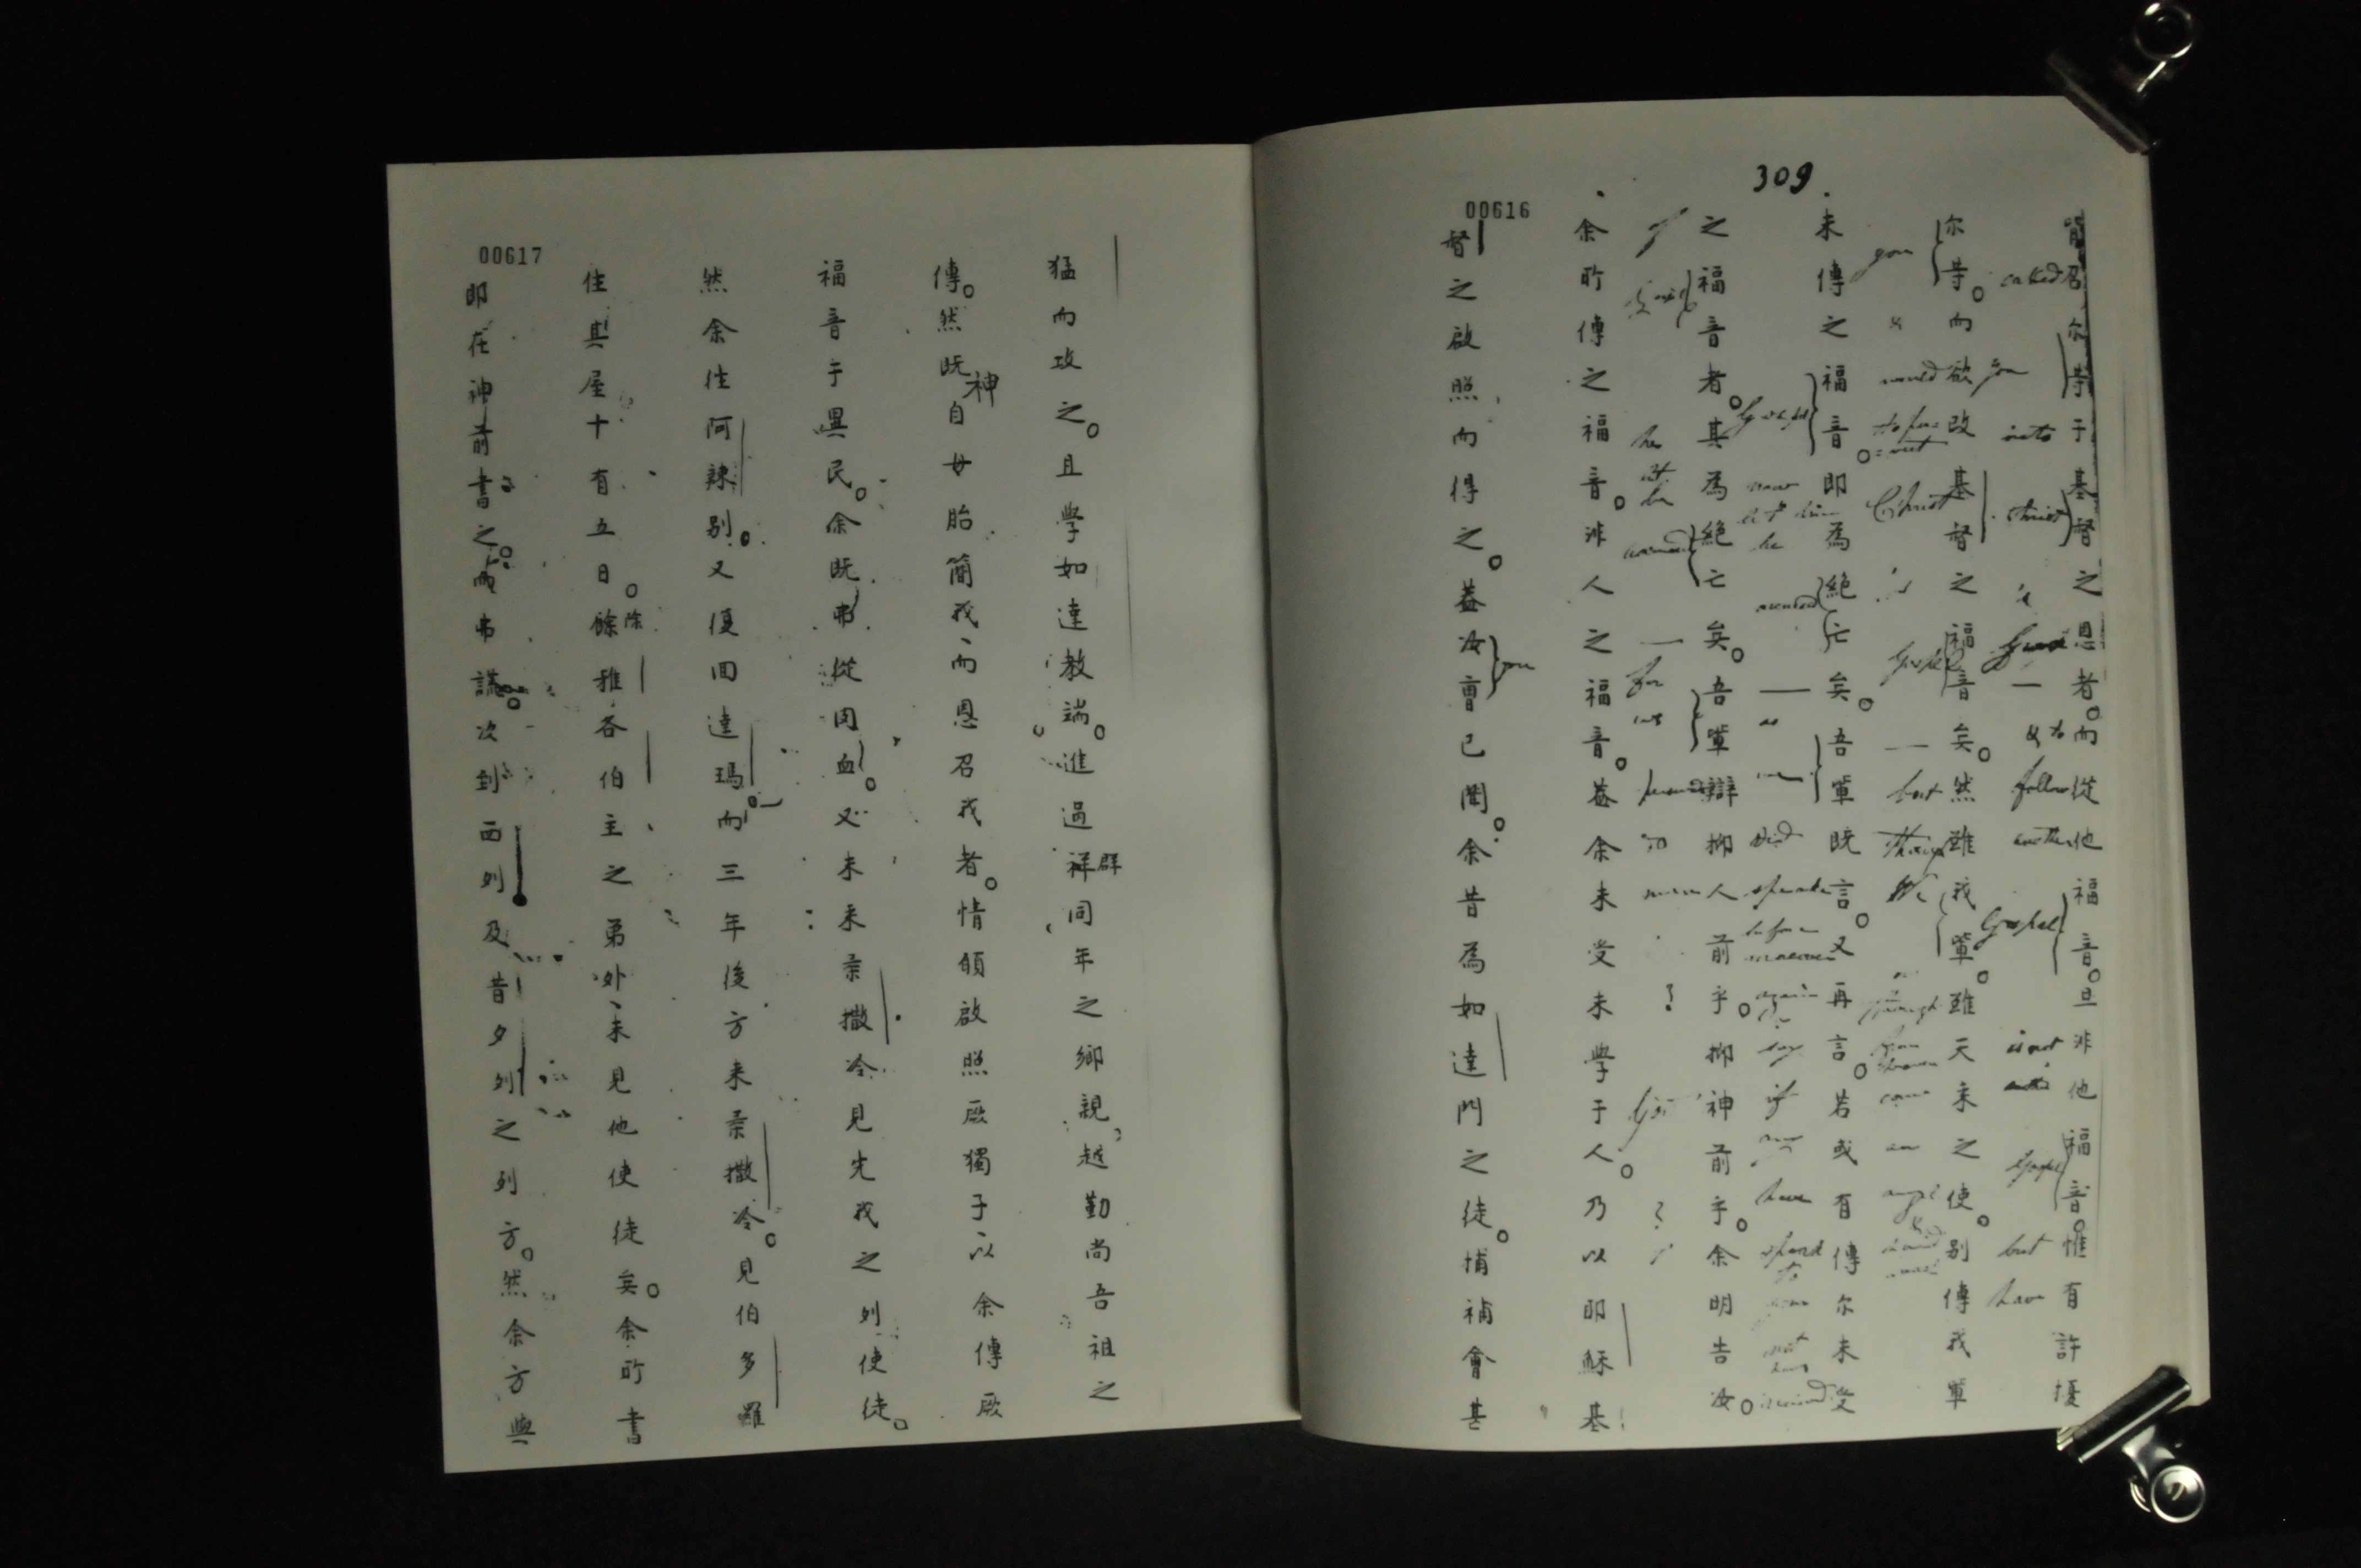 309.
00616
簡召尔等于基督之恩者。而從他福音。旦非他福音。惟有許擾
called
into
Christ
follow
another
Gospel
is not
Gospel
but
have
尔等。而欲改基督之福音矣。然雖我輩。雖天来之使。别傳我輩
you
would
Christ
Gospel
but
though
未傳之福音。即為絕亡矣。吾輩既言。又再言。若或有傳尔未受
Gospel
now
let him
be
as
speake
before
again
say
if
have
之福音者。其為絕亡矣。吾輩辯抑人前乎。抑神前乎。余明告汝。
be
for
余所傳之福音。非人之福音。葢余未受未學于人。乃以耶穌基
督之啟照而得之。葢汝曺已聞。余昔為如達門之徒。捕補會甚
you
00617
猛而攻之。且學如達教端。進過祥同年之鄉親。越勤尚吾祖之
群
傳。然既自女胎簡我、而恩召我者。情頠啟照厥獨子、以余傳厥
神
福音于異民。余既弗從肉血。又未来柔撒冷見先我之列使徒。
然余徃阿辣别。又復囬達瑪。而三年後方来柔撒冷。見伯多羅
住其屋十有五日。餘雅各伯主之弟外、未見他使徒矣。余所書
除
即在神前書之。而弗謊。次到西列及昔夕列之列方。然余方與